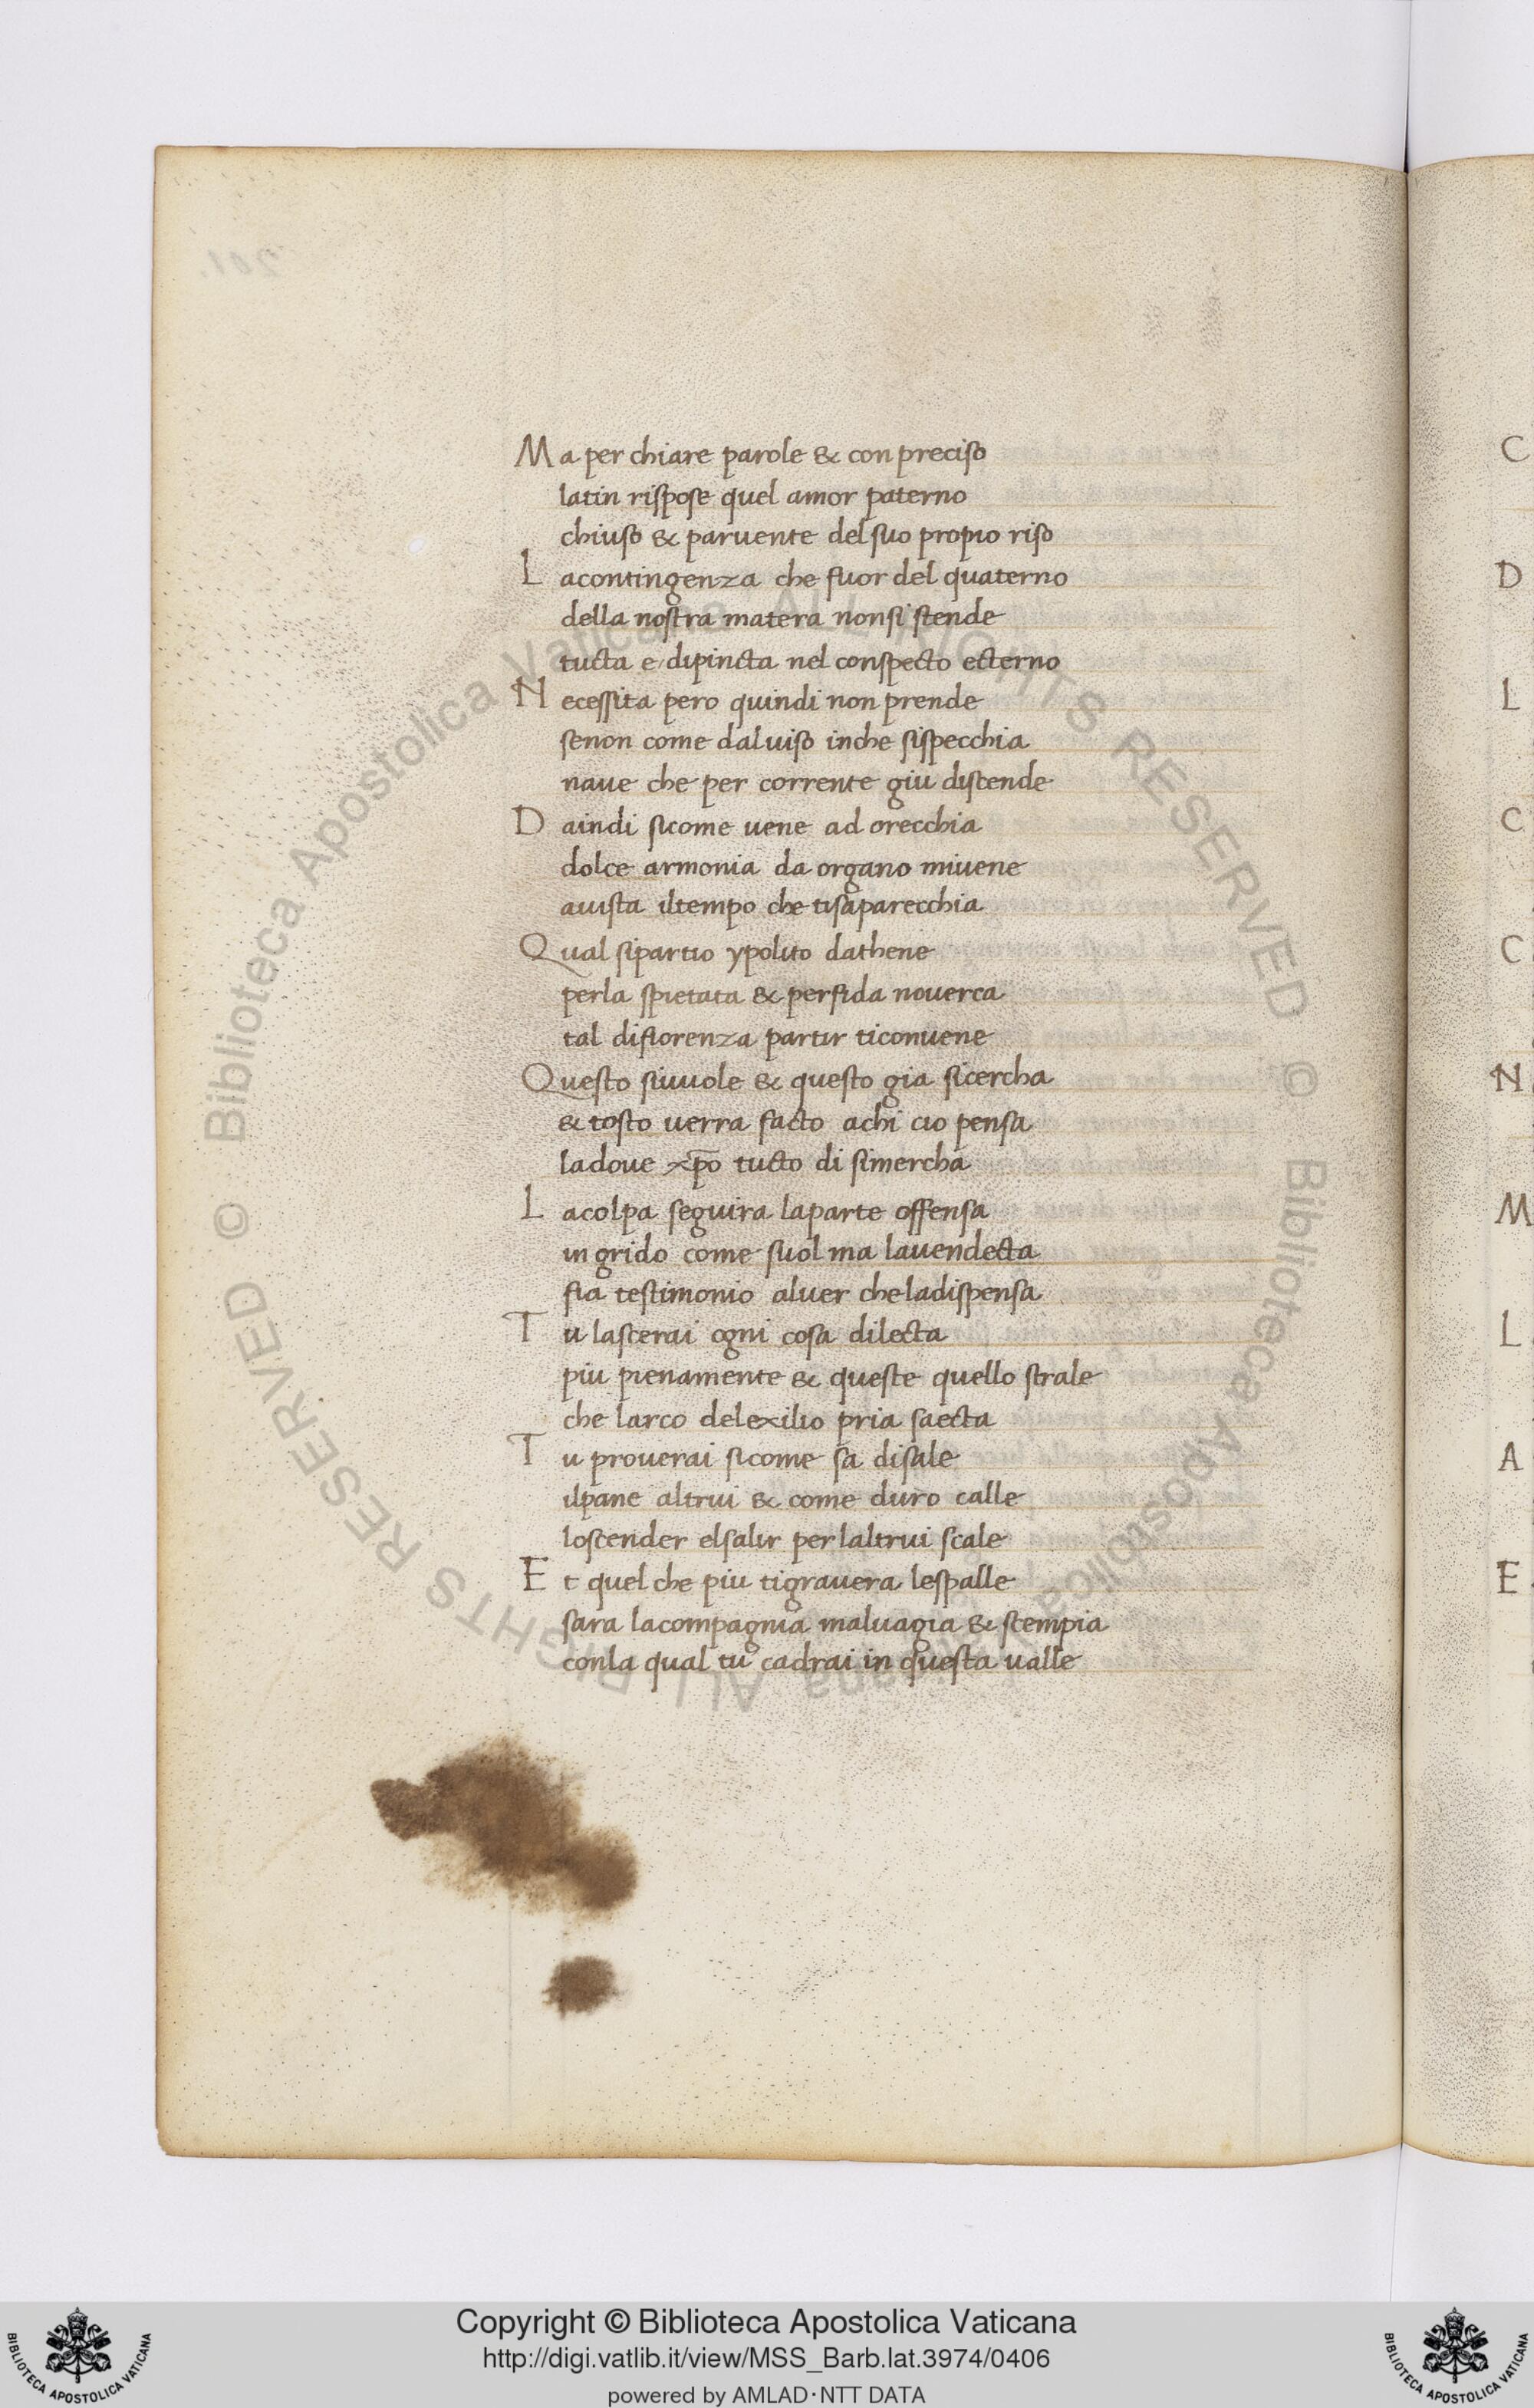 Ma per chiare parole & con preciso
latin rispose quel amor paterno
chiuso & paruente del suo propio riso
Lacontingenza che fuor del quaterno
della nostra matera nonsi stende
tucta e dipincta nel conspecto ecterno
Necessita pero quindi non prende
senon come daluiso inche sispecchia
naue che per corrente giu discende
Daindi sicome uene ad orecchia
dolce armonia da organo miuene
auista iltempo che tisaparecchia
Qual sipartio ypolito dathene
perla spietata & perfida nouerca
tal difiorenza partir ticonuene
Questo siuuole & questo gia sicercha
& tosto uerra facto achi cio pensa
ladoue xpo tucto di simercha
Lacolpa seguira laparte offensa
in grido come suol ma lauendecta
fia testimonio aluer cheladispensa
Tu lascerai ogni cosa dilecta
piu pienamente & queste quello strale
che larco delexilio pria saecta
Tu prouerai sicome sa disale
ilpane altrui & come duro calle
loscender elsalir perlaltrui scale
Et quel che piu tigrauera lespalle
sara lacompagnia maluagia & scempia
conla qual tu cadrai in questa ualle
C
D
L
C
C
N
M
L
A
E
© Biblioteca Apostolica Vaticana ALL RIGHTS RESERVED © Biblioteca Apostolica Vaticana ALL RIGHTS RESERVED
BIBLIOTECA APOSTOLICA VATICANA
Copyright © Biblioteca Apostolica Vaticana
http://digi.vatlib.it/view/MSS_Barb.lat.3974/0406
powered by AMLAD·NTT DATA
BIBLIOTECA APOSTOLICA VATICANA